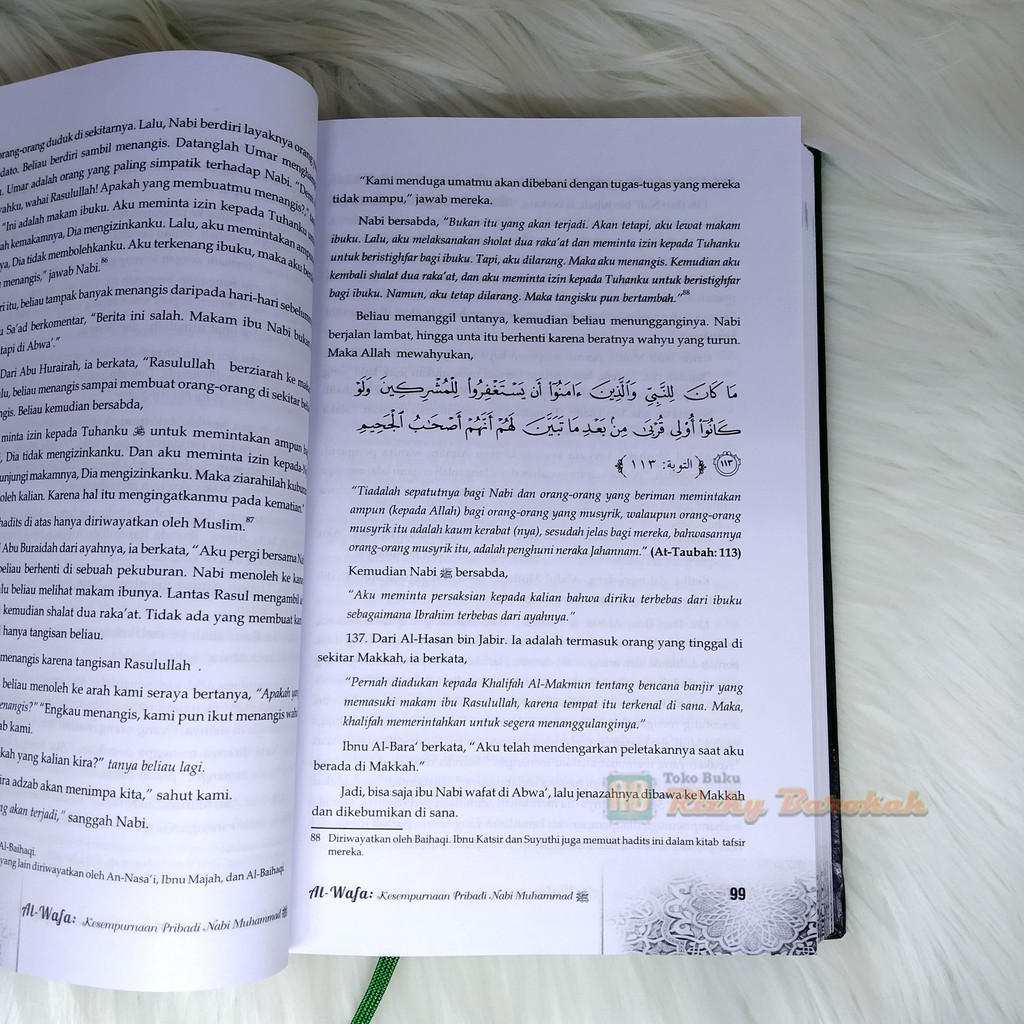 orang-orang duduk di sekitarnya. Lalu, Nabi berdiri layaknya orang
dato. Beliau berdiri sambil menangis. Datanglah Umar
Umar adalah orang yang paling simpatik terhadap Nabi.
wahai Rasulullah! Apakah yang membuatmu menangis?"
"Ini adalah makam ibuku. Aku meminta izin kepada Tuhanku
kemakamnya, Dia mengizinkanku. Lalu, aku memintakan
Dia tidak membolehkanku. Aku terkenang ibuku, maka aku
menangis," jawab Nabi.86
itu, beliau tampak banyak menangis daripada hari-hari
Sa'ad berkomentar, "Berita ini salah. Makam ibu Nabi
tapi di Abwa'."
Dari Abu Hurairah, ia berkata, "Rasulullah berziarah ke
beliau menangis sampai membuat orang-orang di sekitar
Beliau kemudian bersabda,
minta izin kepada Tuhanku ﷻ untuk memintakan ampun
Dia tidak mengizinkanku. Dan aku meminta izin
makamnya, Dia mengizinkanku. Maka ziarahilah
oleh kalian. Karena hal itu mengingatkanmu pada kematian."
hadits di atas hanya diriwayatkan oleh Muslim.87
Abu Buraidah dari ayahnya, ia berkata, "Aku pergi bersama
beliau berhenti di sebuah pekuburan. Nabi menoleh ke
beliau melihat makam ibunya. Lantas Rasul mengambil
kemudian shalat dua raka'at. Tidak ada yang membuat
hanya tangisan beliau.
menangis karena tangisan Rasulullah .
beliau menoleh ke arah kami seraya bertanya, "Apakah
"Engkau menangis, kami pun ikut menangis
kami.
yang kalian kira?" tanya beliau lagi.
adzab akan menimpa kita," sahut kami.
akan terjadi," sanggah Nabi.
Al-Baihaqi.
yang lain diriwayatkan oleh An-Nasa'i, Ibnu Majah, dan Al-Baihaqi
Al-Wafa: Kesempurnaan Pribadi Nabi Muhammad ﷺ
"Kami menduga umatmu akan dibebani dengan tugas-tugas yang mereka
tidak mampu," jawab mereka.
Nabi bersabda, "Bukan itu yang akan terjadi. Akan tetapi, aku lewat makam
ibuku. Lalu, aku melaksanakan sholat dua raka'at dan meminta izin kepada Tuhanku
untuk beristighfar bagi ibuku. Tapi, aku dilarang. Maka aku menangis. Kemudian aku
kembali shalat dua raka'at, dan aku meminta izin kepada Tuhanku untuk beristighfar
bagi ibuku. Namun, aku tetap dilarang. Maka tangisku pun bertambah."88
Beliau memanggil untanya, kemudian beliau menungganginya. Nabi
berjalan lambat, hingga unta itu berhenti karena beratnya wahyu yang turun.
Maka Allah mewahyukan,
مَا كَانَ لِلنَّبِيِّ وَالَّذِينَ ءَامَنُوٓا۟ أَن يَسْتَغْفِرُوا۟ لِلْمُشْرِكِينَ وَلَوْ
كَانُوٓا۟ أُو۟لِى قُرْبَىٰ مِنۢ بَعْدِ مَا تَبَيَّنَ لَهُمْ أَنَّهُمْ أَصْحَٰبُ ٱلْجَحِيمِ
١١٣ ﴿التوبة: ١١٣﴾
"Tiadalah sepatutnya bagi Nabi dan orang-orang yang beriman memintakan
ampun (kepada Allah) bagi orang-orang yang musyrik, walaupun orang-orang
musyrik itu adalah kaum kerabat (nya), sesudah jelas bagi mereka, bahwasannya
orang-orang musyrik itu, adalah penghuni neraka Jahannam." (At-Taubah: 113)
Kemudian Nabi ﷺ bersabda,
"Aku meminta persaksian kepada kalian bahwa diriku terbebas dari ibuku
sebagaimana Ibrahim terbebas dari ayahnya."
137. Dari Al-Hasan bin Jabir. Ia adalah termasuk orang yang tinggal di
sekitar Makkah, ia berkata,
"Pernah diadukan kepada Khalifah Al-Makmun tentang bencana banjir yang
memasuki makam ibu Rasulullah, karena tempat itu terkenal di sana. Maka,
khalifah memerintahkan untuk segera menanggulanginya."
Ibnu Al-Bara' berkata, "Aku telah mendengarkan peletakannya saat aku
berada di Makkah."
Jadi, bisa saja ibu Nabi wafat di Abwa', lalu jenazahnya dibawa ke Makkah
dan dikebumikan di sana.
88 Diriwayatkan oleh Baihaqi. Ibnu Katsir dan Suyuthi juga memuat hadits ini dalam kitab tafsir
mereka.
Al-Wafa: Kesempurnaan Pribadi Nabi Muhammad ﷺ
99
Toko Buku
Rizky Barokah